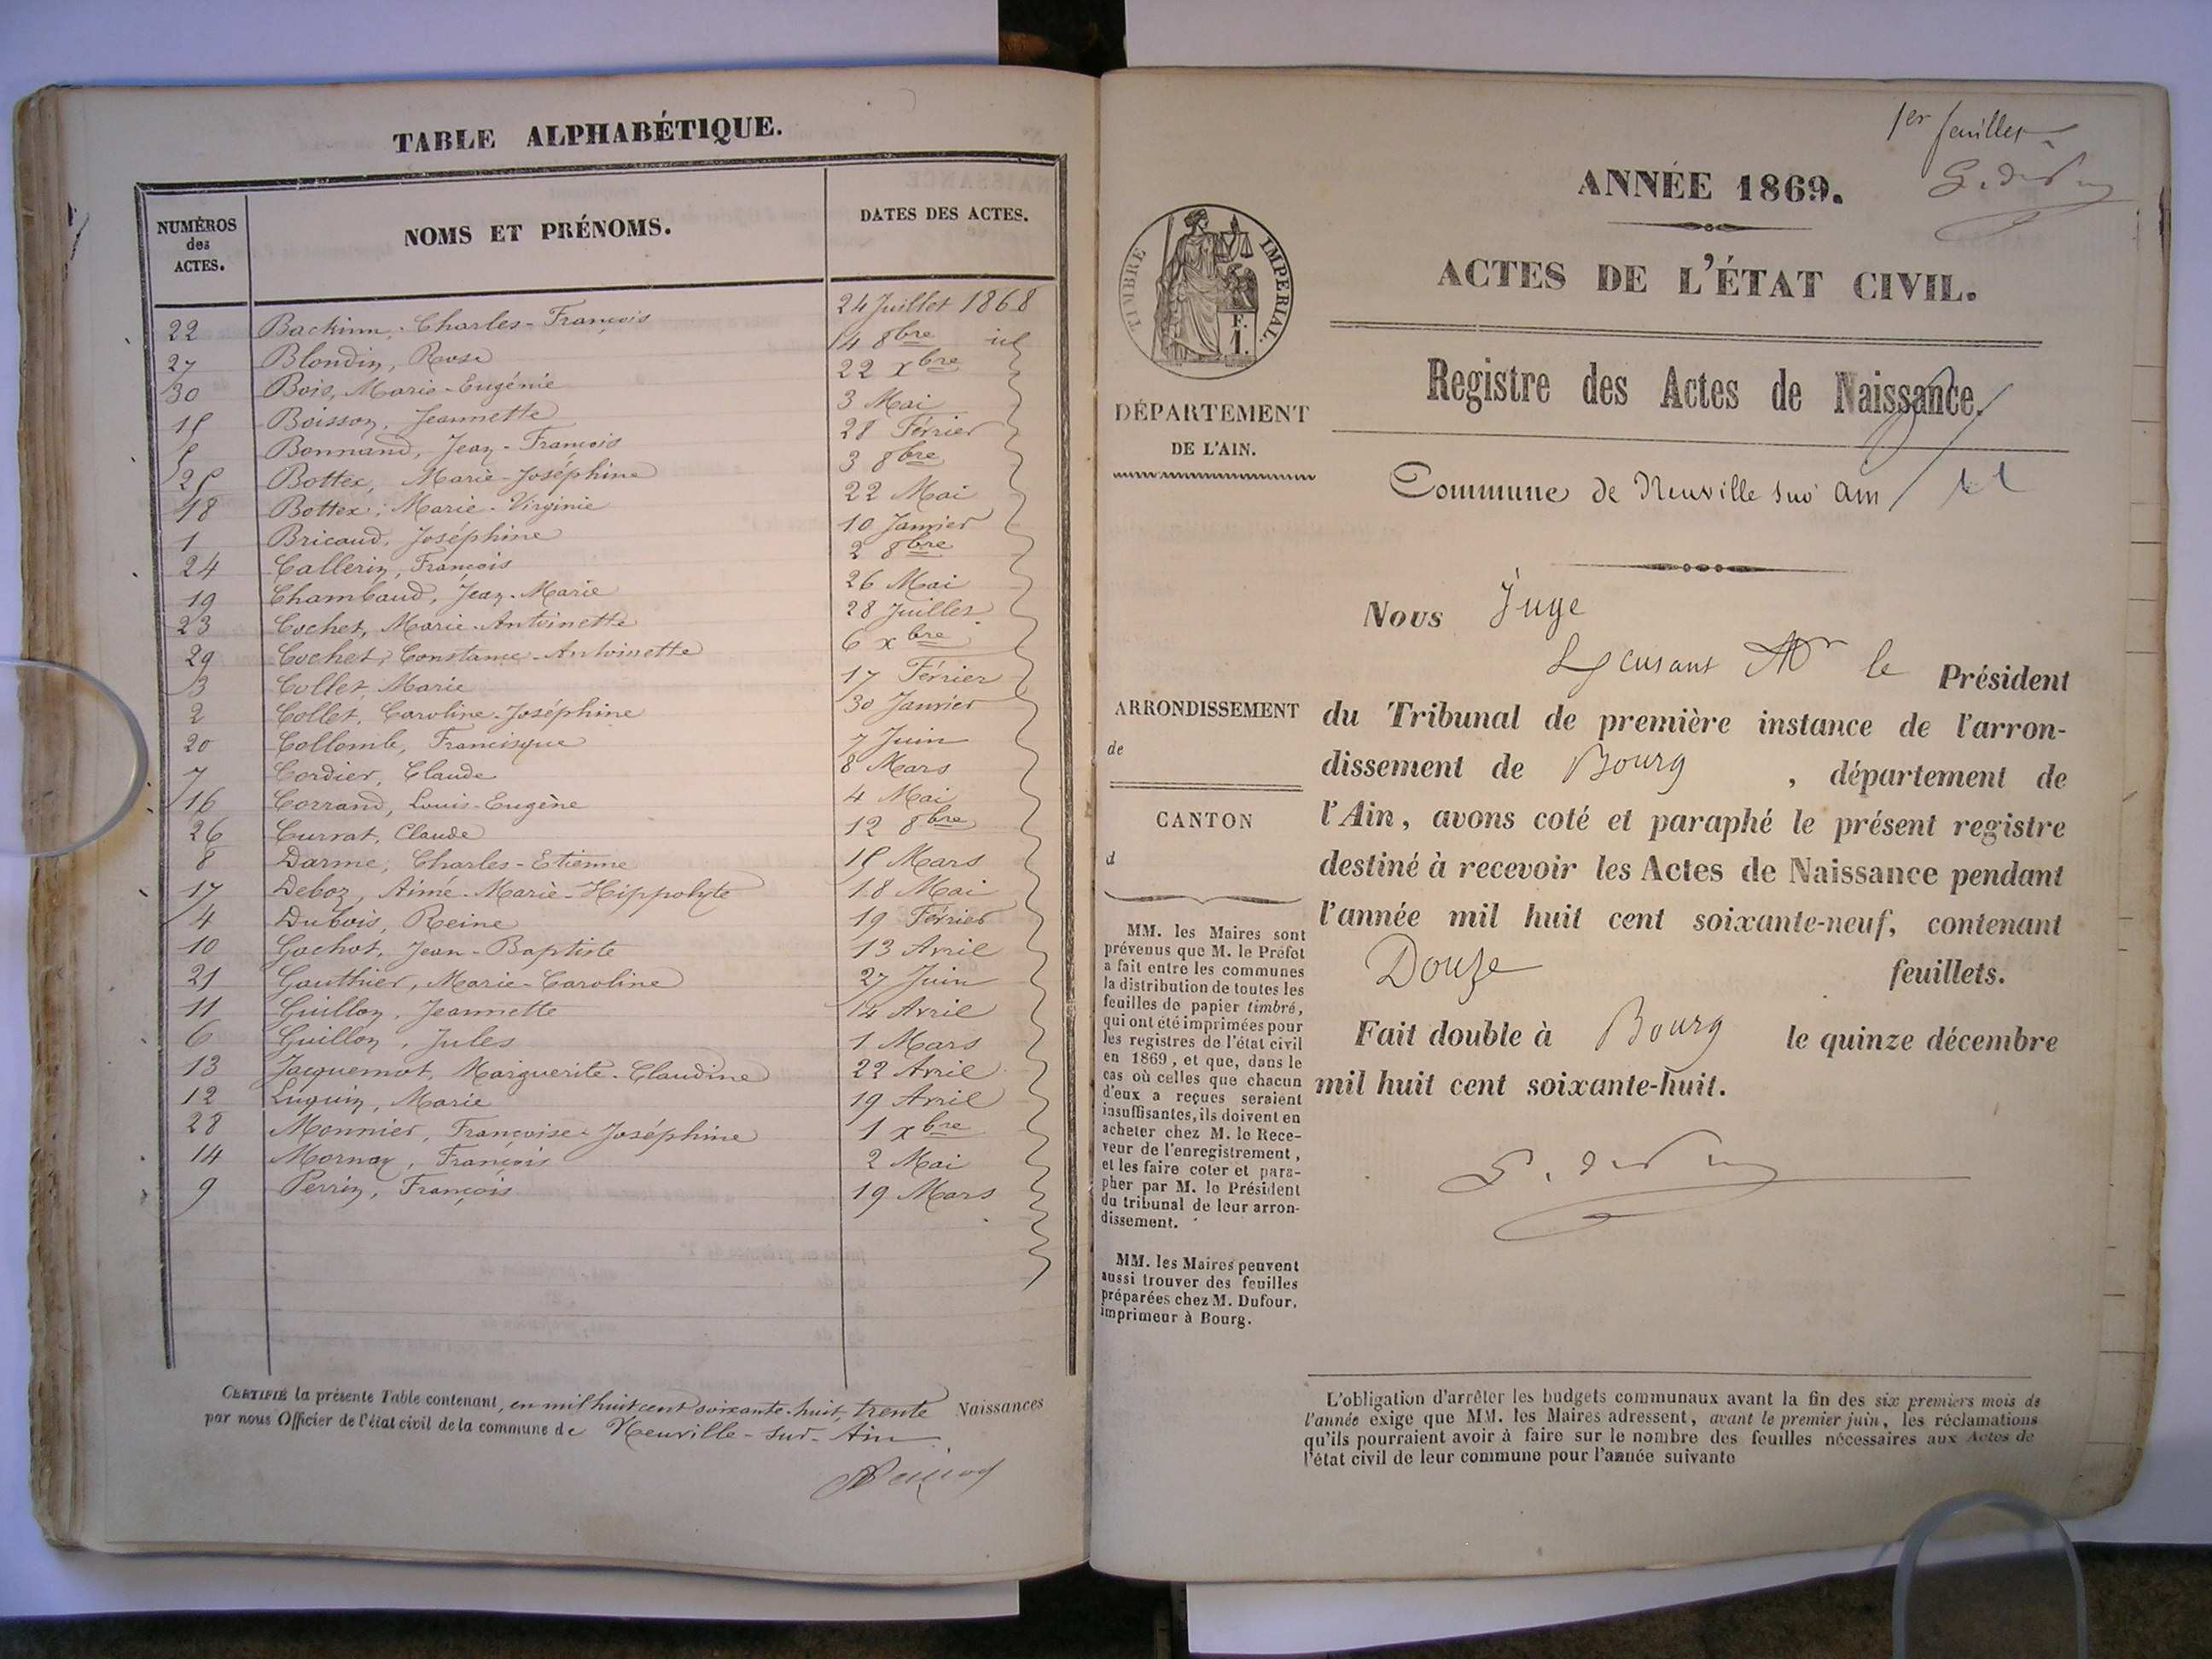 TABLE ALPHABÉTIQUE.
NUMÉROS des ACTES. NOMS ET PRÉNOMS. DATES DES ACTES.
22 Charles-François 24 Juillet 1868
27 Blondin, Rose 14 8bre id
30 Bois, Marie-Eugénie 22 xbre
15 Boisson, Jeannette 3 Mai
5 Bonnand, Jean-François 28 Février
25 Bottex, Marie-Joséphine 3 8bre
18 Bottex, Marie-Virginie 22 Mai
1 Bricaud, Joséphine 10 Janvier
24 Callerin, François 2 8bre
19 Chambaud, Jean-Marie 26 Mai
23 Cochet, Marie-Antoinette 28 Juillet
29 Cochet, Constance-Antoinette 6 xbre
3 Collet, Marie 17 Février
2 Collet, Caroline-Joséphine 30 Janvier
20 Collomb, Francisque 7 Juin
7 Cordier, Claude 8 Mars
16 Corrand, Louis-Eugène 4 Mai
26 Currat, Claude 12 8bre
8 Darme, Charles-Etienne 15 Mars
17 Deboz, Aimé-Marie-Hippolyte 18 Mai
4 Dubois, Reine 19 Février
10 Gachot, Jean-Baptiste 13 Avril
21 Gauthier, Marie-Caroline 27 Juin
11 Guillon, Jeannette 14 Avril
6 Guillon, Jules 1 Mars
13 Jacquemot, Marguerite-Claudine 22 Avril
12 Luquin, Marie 19 Avril
28 Monnier, Françoise-Joséphine 1 xbre
14 Mornay, François 2 Mai
9 Perrin, François 19 Mars
CERTIFIÉ la présente Table contenant, en mil huit cent soixante-huit, trente Naissances
par nous Officier de l'état civil de la commune de Neuville-sur-Ain
1er feuillet
ANNÉE 1869.
ACTES DE L'ÉTAT CIVIL.
TIMBRE IMPERIAL.
F.
1.
Registre des Actes de Naissance.
DÉPARTEMENT
DE L'AIN.
Commune de Neuville sur Ain
Nous Juge
le Président
ARRONDISSEMENT
de
du Tribunal de première instance de l'arron-
dissement de Bourg, département de
l'Ain, avons coté et paraphé le présent registre
destiné à recevoir les Actes de Naissance pendant
l'année mil huit cent soixante-neuf, contenant
Douze feuillets.
Fait double à Bourg le quinze décembre
mil huit cent soixante-huit.
CANTON
d
MM. les Maires sont
prévenus que M. le Préfet
a fait entre les communes
la distribution de toutes les
feuilles de papier timbré,
qui ont été imprimées pour
les registres de l'état civil
en 1869, et que, dans le
cas où celles que chacun
d'eux a reçues seraient
insuffisantes, ils doivent en
acheter chez M. le Rece-
veur de l'enregistrement,
et les faire coter et para-
pher par M. le Président
du tribunal de leur arron-
dissement.
MM. les Maires peuvent
aussi trouver des feuilles
préparées chez M. Dufour,
imprimeur à Bourg.
L'obligation d'arrêter les budgets communaux avant la fin des six premiers mois de
l'année exige que MM. les Maires adressent, avant le premier juin, les réclamations
qu'ils pourraient avoir à faire sur le nombre des feuilles nécessaires aux Actes de
l'état civil de leur commune pour l'année suivante